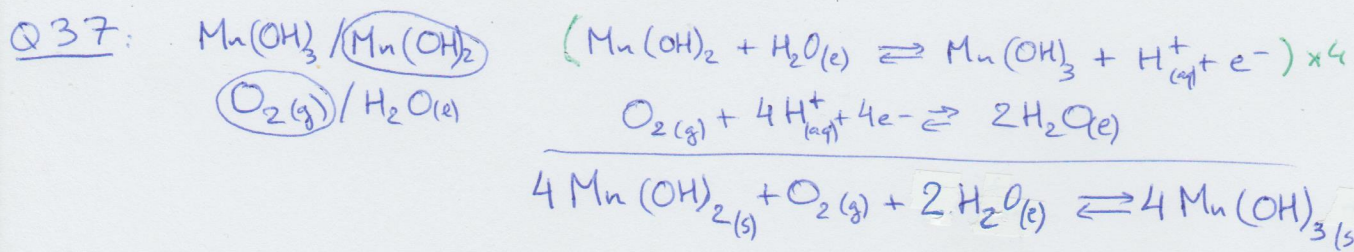 Q 37: Mn(OH)3/Mn(OH)2 (Mn(OH)2 + H2O(l) ⇌ Mn(OH)3 + H+(aq) + e-) x4
O2(g)/H2O(l) O2(g) + 4H+(aq) + 4e- ⇌ 2H2O(l)
4 Mn(OH)2(s) + O2(g) + 2 H2O(l) ⇌ 4 Mn(OH)3(s